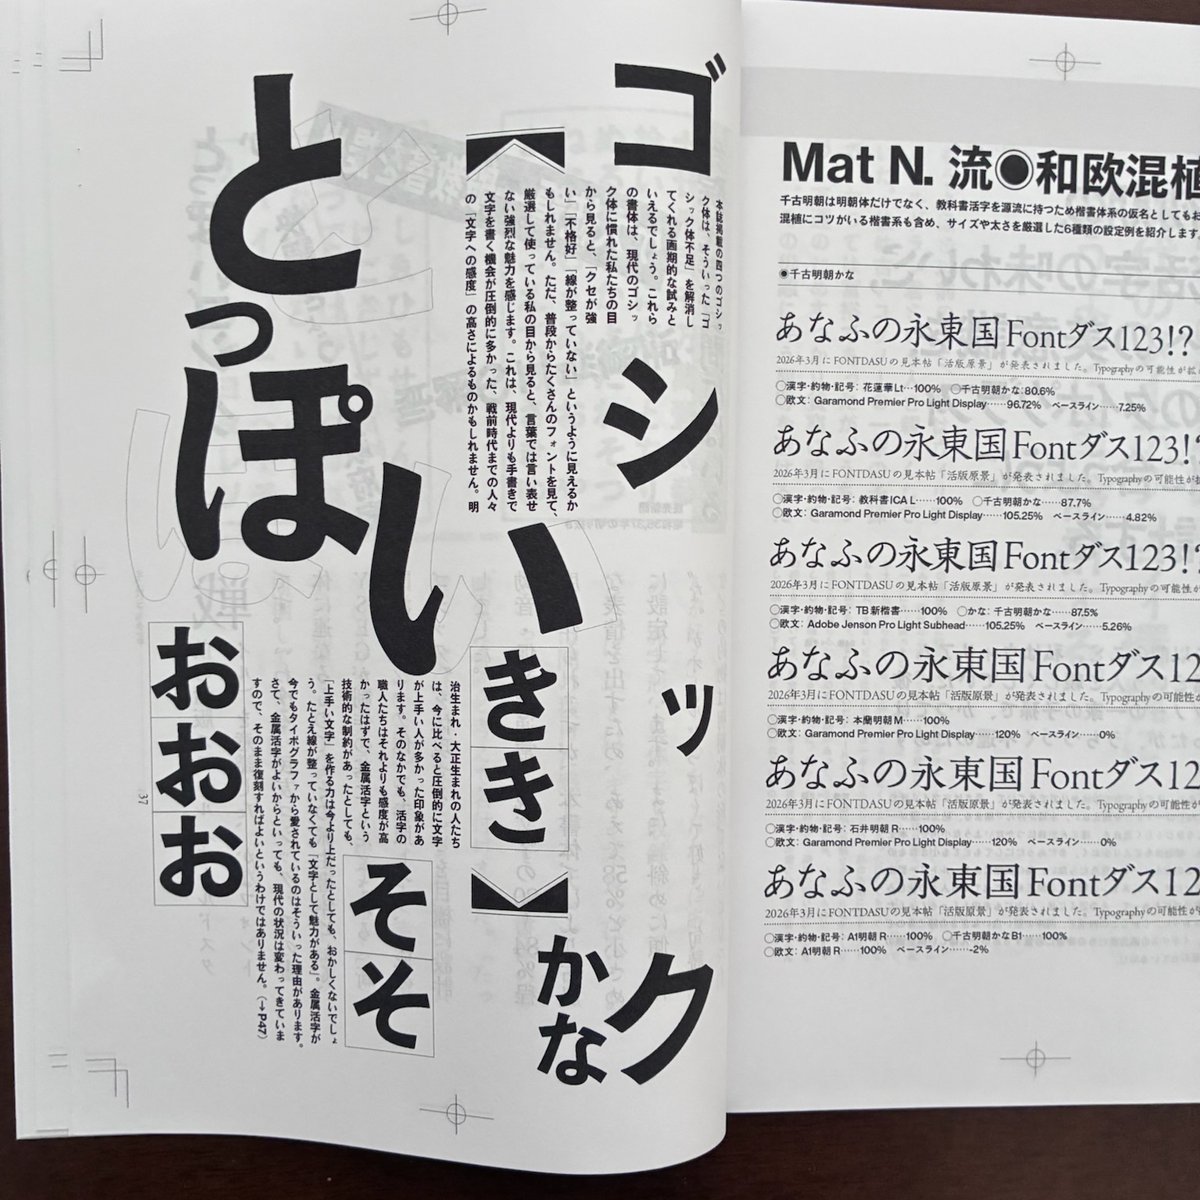 ゴシック
とっぽい
【
本誌掲載の四つのゴシッ
ク体は、そういった「ゴ
シック体不足」を解消し
てくれる画期的な試みと
いえるでしょう。これら
の書体は、現代のゴシッ
ク体に慣れた私たちの目
から見ると、「クセが強
い」「不格好」「線が整っていない」というように見えるか
もしれません。ただ、普段からたくさんのフォントを見て、
厳選して使っている私の目から見ると、言葉では言い表せ
ない強烈な魅力を感じます。これは、現代よりも手書きで
文字を書く機会が圧倒的に多かった、戦前時代までの人々
の「文字への感度」の高さによるものかもしれません。明
治生まれ・大正生まれの人たち
は、今に比べると圧倒的に文字
が上手い人が多かった印象があ
ります。そのなかでも、活字の
職人たちはそれよりも感度が高
かったはずで、金属活字という
技術的な制約があったとしても、
「上手い文字」を作る力は今より上だったとしても、おかしくないでしょ
う。たとえ線が整っていなくても「文字として魅力がある」。金属活字が
今でもタイポグラファから愛されているのはそういった理由があります。
さて、金属活字がよいからといっても、現代の状況は変わってきていま
すので、そのまま復刻すればよいというわけではありません。(→P47)
きき
】
かな
そそ
おおお
37
Mat N. 流◉和欧混植
千古明朝は明朝体だけでなく、教科書活字を源流に持つため楷書体系の仮名としてもお
混植にコツがいる楷書系も含め、サイズや太さを厳選した6種類の設定例を紹介します
◉千古明朝かな
あなふの永東国Fontダス123!?
2026年3月にFONTDASUの見本帖「活版原景」が発表されました。Typographyの可能性が拡
○漢字・約物・記号: 花蓮華Lt…100% ○千古明朝かな:80.6%
○欧文: Garamond Premier Pro Light Display……96.72% ベースライン……7.25%
あなふの永東国Fontダス123!?
2026年3月にFONTDASUの見本帖「活版原景」が発表されました。Typographyの可能性が拡
○漢字・約物・記号: 教科書ICA L……100% ○千古明朝かな……87.7%
○欧文: Garamond Premier Pro Light Display……105.25% ベースライン……4.82%
あなふの永東国Fontダス123!?
2026年3月にFONTDASUの見本帖「活版原景」が発表されました。Typographyの可能性が
○漢字・約物・記号: TB新楷書……100% ○かな: 千古明朝かな……87.5%
○欧文: Adobe Jenson Pro Light Subhead……105.25% ベースライン……5.26%
あなふの永東国Fontダス12
2026年3月にFONTDASUの見本帖「活版原景」が発表されました。Typographyの可能性が
○漢字・約物・記号: 本蘭明朝M……100%
○欧文: Garamond Premier Pro Light Display……120% ベースライン……0%
あなふの永東国Fontダス12
2026年3月にFONTDASUの見本帖「活版原景」が発表されました。Typographyの可能性が
○漢字・約物・記号: 石井明朝 R……100%
○欧文: Garamond Premier Pro Light Display……120% ベースライン……0%
あなふの永東国Fontダス12
2026年3月にFONTDASUの見本帖「活版原景」が発表されました。Typographyの可能性が
○漢字・約物・記号: A1明朝 R……100% ○千古明朝かなB1……100%
○欧文: A1明朝 R……100% ベースライン……-2%